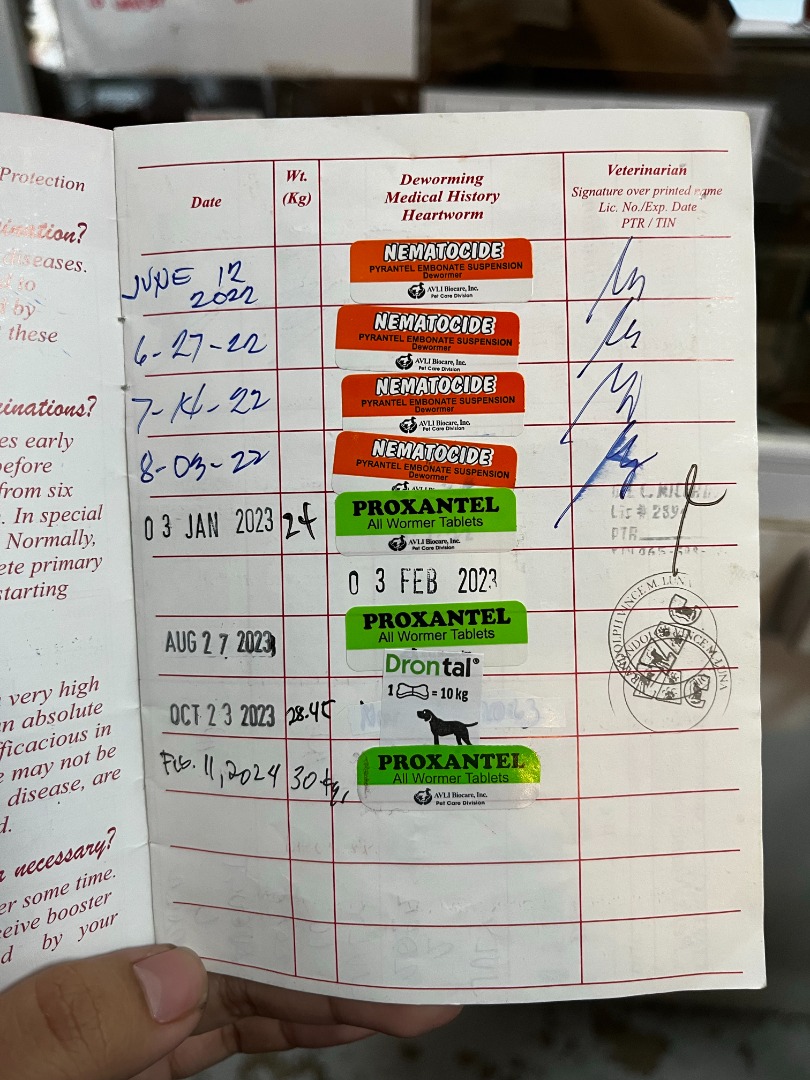 Protection
ination?
diseases.
d so
n by
these
cinations?
es early
before
from six
. In special
Normally,
ete primary
starting
very high
n absolute
fficacious in
e may not be
disease, are
d.
r necessary?
er some time.
ceive booster
d by your
Date
Wt.
(Kg)
Deworming
Medical History
Heartworm
Veterinarian
Signature over printed name
Lic. No./Exp. Date
PTR / TIN
JUNE 12
2022
NEMATOCIDE
PYRANTEL EMBONATE SUSPENSION
Dewormer
AVLI Biocare, Inc.
Pet Care Division
6-27-22
NEMATOCIDE
PYRANTEL EMBONATE SUSPENSION
Dewormer
AVLI Biocare, Inc.
Pet Care Division
7-14-22
NEMATOCIDE
PYRANTEL EMBONATE SUSPENSION
Dewormer
AVLI Biocare, Inc.
Pet Care Division
8-03-22
NEMATOCIDE
PYRANTEL EMBONATE SUSPENSION
Dewormer
03 JAN 2023
PROXANTEL
All Wormer Tablets
AVLI Biocare, Inc.
Pet Care Division
Lic #
PTR
03 FEB 2023
AUG 27 2023
PROXANTEL
All Wormer Tablets
Drontal®
1 = 10 kg
OCT 23 2023
28.45
Feb. 11, 2024
30 kg
PROXANTEL
All Wormer Tablets
AVLI Biocare, Inc.
Pet Care Division